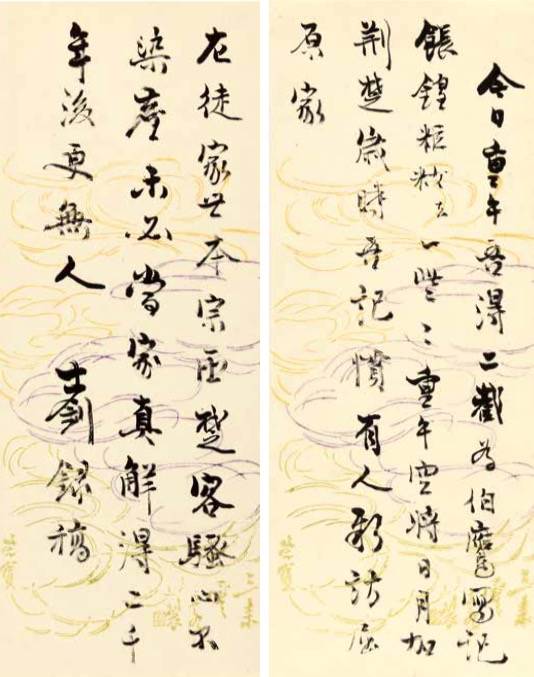 今日重午吾得二截為伯鷹寫記
餦餭粔籹些〻重午空將日月加
荊楚歲時吾記慣有人新訪屈
原家
左徒家世本宗臣楚客騷心不
染塵未必當家真解得二千
年後更無人 士釗錄稿